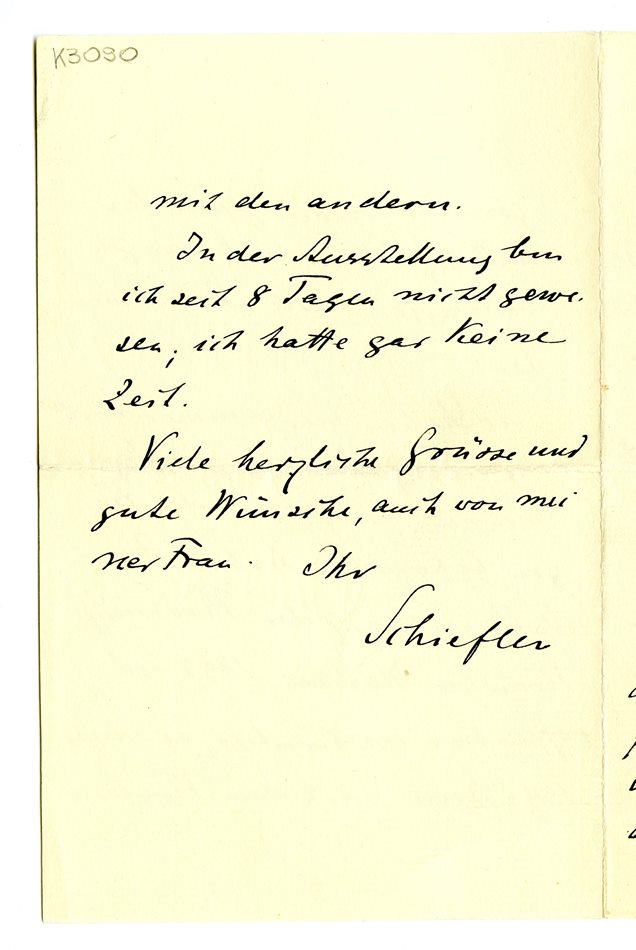 K3090
mit den andern.
In der Ausstellung bin
ich seit 8 Tagen nicht gewe-
sen; ich hatte gar Keine
Zeit.
Viele herzliche Grüsse und
gute Wünsche, auch von mei
ner Frau. Ihr
Schiefler